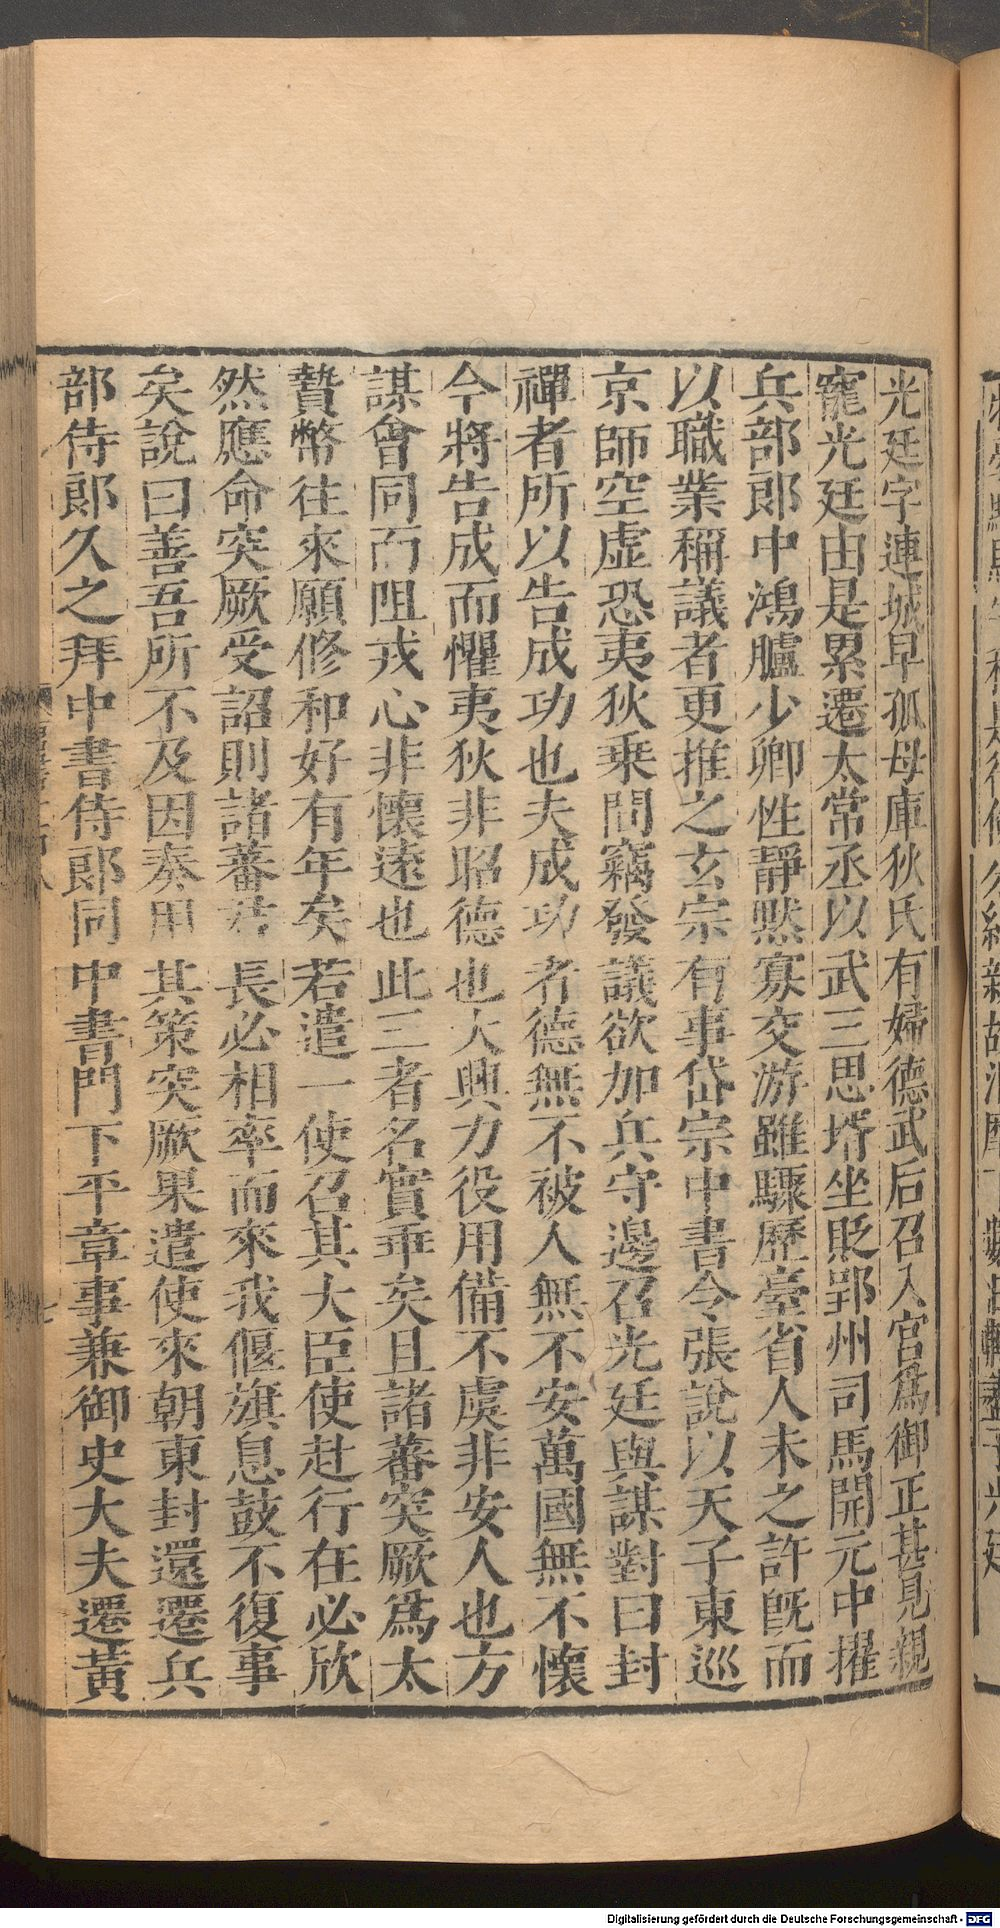 光廷字連城早孤母庫狄氏有婦德武后召入宮爲御正甚見親
寵光廷由是累遷太常丞以武三思壻坐貶郢州司馬開元中擢
兵部郎中鴻臚少卿性靜默寡交游雖驟歷臺省人未之許旣而
以職業稱議者更推之玄宗有事岱宗中書令張說以天子東巡
京師空虛恐夷狄乗間竊發議欲加兵守邊召光廷與謀對曰封
禪者所以告成功也夫成功者德無不被人無不安萬國無不懷
今將告成而懼夷狄非昭德也大興力役用備不虞非安人也方
謀會同而阻戎心非懷遠也此三者名實乖矣且諸蕃突厥爲太
贄幣往來願修和好有年矣若遣一使召其大臣使赴行在必欣
然應命突厥受詔則諸蕃君長必相率而來我偃旗息鼓不復事
矣說曰善吾所不及因奏用其策突厥果遣使來朝東封還遷兵
部侍郎久之拜中書侍郎同中書門下平章事兼御史大夫遷黃
Digitalisierung gefördert durch die Deutsche Forschungsgemeinschaft - DFG